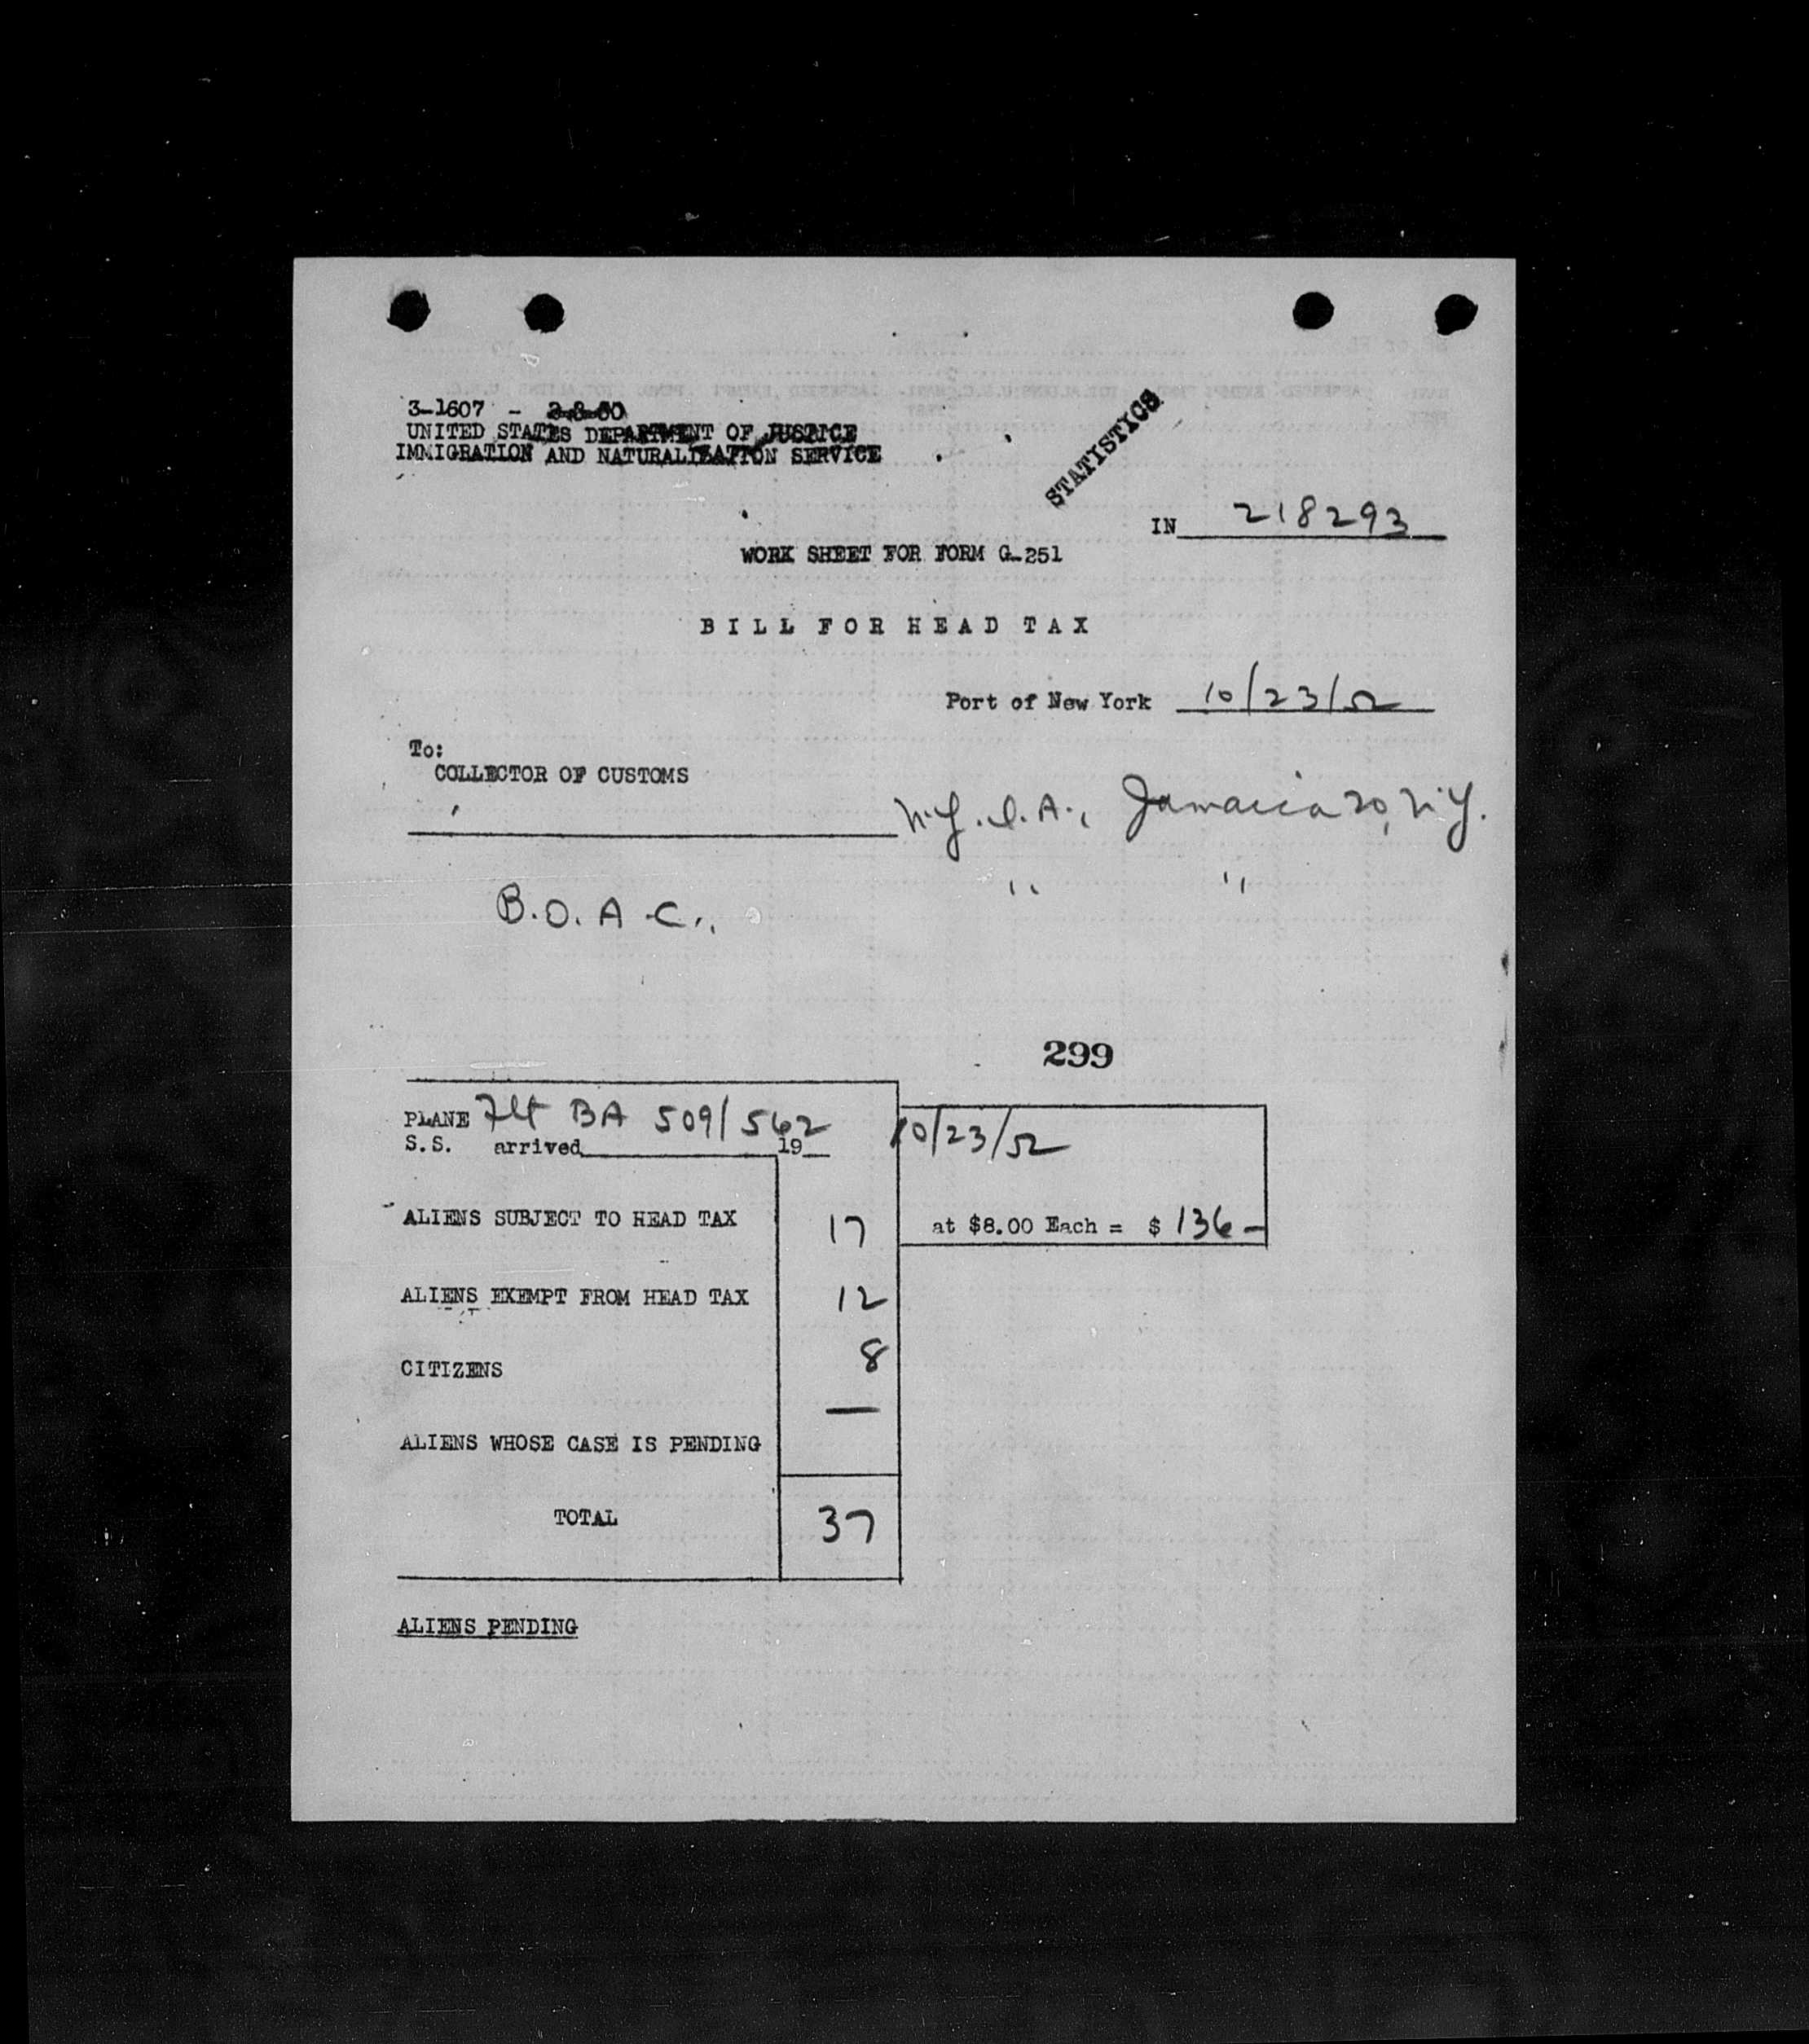 3-1607 - 2-8-50
UNITED STATES DEPARTMENT OF JUSTICE
IMMIGRATION AND NATURALIZATION SERVICE
STATISTICS
IN 218293
WORK SHEET FOR FORM G-251
BILL FOR HEAD TAX
Port of New York 10/23/52
To:
COLLECTOR OF CUSTOMS
N.Y.I.A., Jamaica 20, N.Y.
B.O.A.C., " "
299
PLANE Flt BA 509/562 10/23/52
S.S. arrived 19
ALIENS SUBJECT TO HEAD TAX 17 at $8.00 Each = $ 136 –
ALIENS EXEMPT FROM HEAD TAX 12
CITIZENS 8
ALIENS WHOSE CASE IS PENDING —
TOTAL 37
ALIENS PENDING